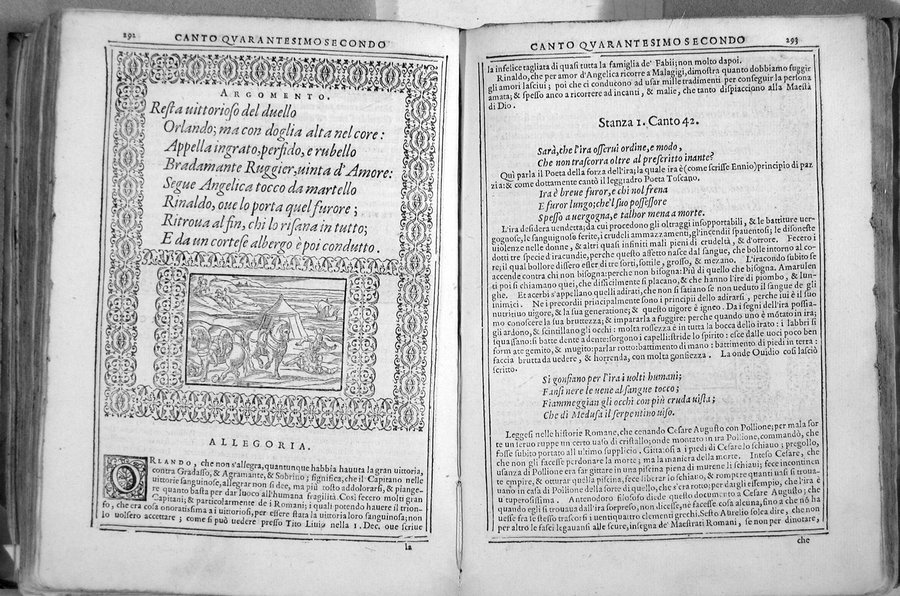 292
CANTO QVARANTESIMO SECONDO
ARGOMENTO.
Resta uittorioso del duello
Orlando; ma con doglia alta nel core:
Appella ingrato, perfido, e rubello
Bradamante Ruggier, uinta d'Amore:
Segue Angelica tocco da martello
Rinaldo, oue lo porta quel furore;
Ritroua al fin, chi lo risana in tutto;
E da un cortese albergo è poi condutto.
ALLEGORIA.
ORLANDO, che non s'allegra, quantunque habbia hauuta la gran uittoria,
contra Gradasso, & Agramante, & Sobrino; significa, che il Capitano nelle
uittorie sanguinose, allegrar non si dee, ma più tosto addolorarsi, & piange-
re quanto basta per dar luoco all'humana fragilità. Così fecero molti gran
Capitani; & particolarmente de i Romani; i quali potendo hauere il trion-
fo, che era cosa onoratissima a i uittoriosi, per essere stata la uittoria loro sanguinosa; non
lo uolsero accettare; come si può uedere presso Tito Liuio nella 1. Dec. oue scriue
la
CANTO QVARANTESIMO SECONDO
293
la infelice tagliata di quasi tutta la famiglia de' Fabii; non molto dapoi.
Rinaldo, che per amor d'Angelica ricorre a Malagigi, dimostra quanto dobbiamo fuggir
gli amori lasciui; poi che ci conducono ad usar mille tradimenti per conseguir la persona
amata; & spesso anco a ricorrere ad incanti, & malie, che tanto dispiacciono alla Maestà
di Dio.
Stanza 1. Canto 42.
Sarà, che l'ira osserui ordine, e modo,
Che non trascorra oltre al prescritto inante?
Quì parla il Poeta della forza dell'ira; la quale ira è (come scrisse Ennio) principio di paz
zia: & come dottamente cantò il leggiadro Poeta Toscano.
Ira è breue furor, e chi nol frena
E furor lungo; che'l suo possessore
Spesso a uergogna, e talhor mena a morte.
L'ira desidera uendetta; da cui procedono gli oltraggi insopportabili, & le battiture uer-
gognose, le sanguinose ferite, crudeli ammazzamenti, gl'incendii spauentosi; le disoneste
uiolenze nelle donne, & altri quasi infiniti mali pieni di crudeltà, & d'orrore. Fecero i
dotti tre specie d'iracundie, perche questo affetto nasce dal sangue, che bolle intorno al co-
re; il qual bollore dissero esser di tre sorti, sottile, grosso, & mezano. L'iracondo subito se
accende contra chi non bisogna: perche non bisogna: Più di quello che bisogna. Amarulen
ti poi si chiamano quei, che difficilmente si placano, & che hanno l'ire di piombo, & lun-
ghe. Et acerbi s'appellano quelli adirati, che non si satiano se non ueduto il sangue de gli
inimici. Ne i precordii principalmente sono i principii dello adirarsi, perche iui è il suo
nutritiuo uigore, & la sua generatione; & questo uigore è igneo. Da i segni dell'ira possia-
mo conoscere la sua bruttezza; & impararla a fuggire: perche quando uno è mótato in ira;
gli ardono, & scintillano gli occhi: molta rossezza è in tutta la bocca dello irato: i labbri si
squassano: si batte dente a dente: sorgono i capelli: stride lo spirito: esce dalle uoci poco ben
form ate gemito, & mugito: parlar rotto: battimento di mano: battimento di piedi in terra:
faccia brutta da uedere, & horrenda, con molta gonfiezza. La onde Ouidio così lasciò
scritto.
Si gonfiano per l'ira i uolti humani;
Fansi nere le uene al sangue tocco;
Fiammeggian gli occhi con più cruda uista;
Che di Medusa il serpentino uiso.
Leggesi nelle historie Romane, che cenando Cesare Augusto con Pollione; per mala sor
te un seruo ruppe un certo uaso di cristallo; onde montato in ira Pollione, commandò, che
fosse subito portato all'ultimo supplicio. Gittatosi a i piedi di Cesare lo schiauo; pregollo,
che non gli facesse perdonare la morte; ma la maniera della morte. Inteso Cesare, che
usanza di Pollione era far gittare in una piscina piena di murene li schiaui; fece incontinen
te empire, & otturar quella piscina, fece liberar lo schiauo, & rompere quanti uasi si troua-
uano in casa di Pollione della sorte di quello, che s'era rotto; per dargli essempio, che l'ira è
uituperosissima. Antenodoro filosofo diede questo documento a Cesare Augusto; che
quando egli si trouaua dall'ira sorpreso, non dicesse, ne facesse cosa alcuna, fino a che nō ha
uesse fra se stesso trascorsi i uentiquattro elementi grechi. Sesto Aurelio solea dire, che non
per altro le fasci legauansi alle scure, insegna de' Maestrati Romani, se non per dinotare,
che